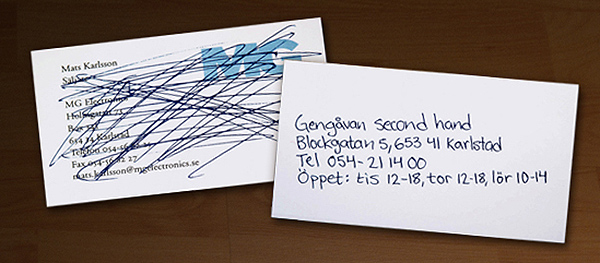 Mats Karlsson
Säljare
MG
MG Electronics
Box
Karlstad
Telefon 054-56
Fax 054-56 27
mats.karlsson@mgelectronics.se
Gengåvan second hand
Blockgatan 5, 653 41 Karlstad
Tel 054-21 14 00
Öppet: tis 12-18, tor 12-18, lör 10-14